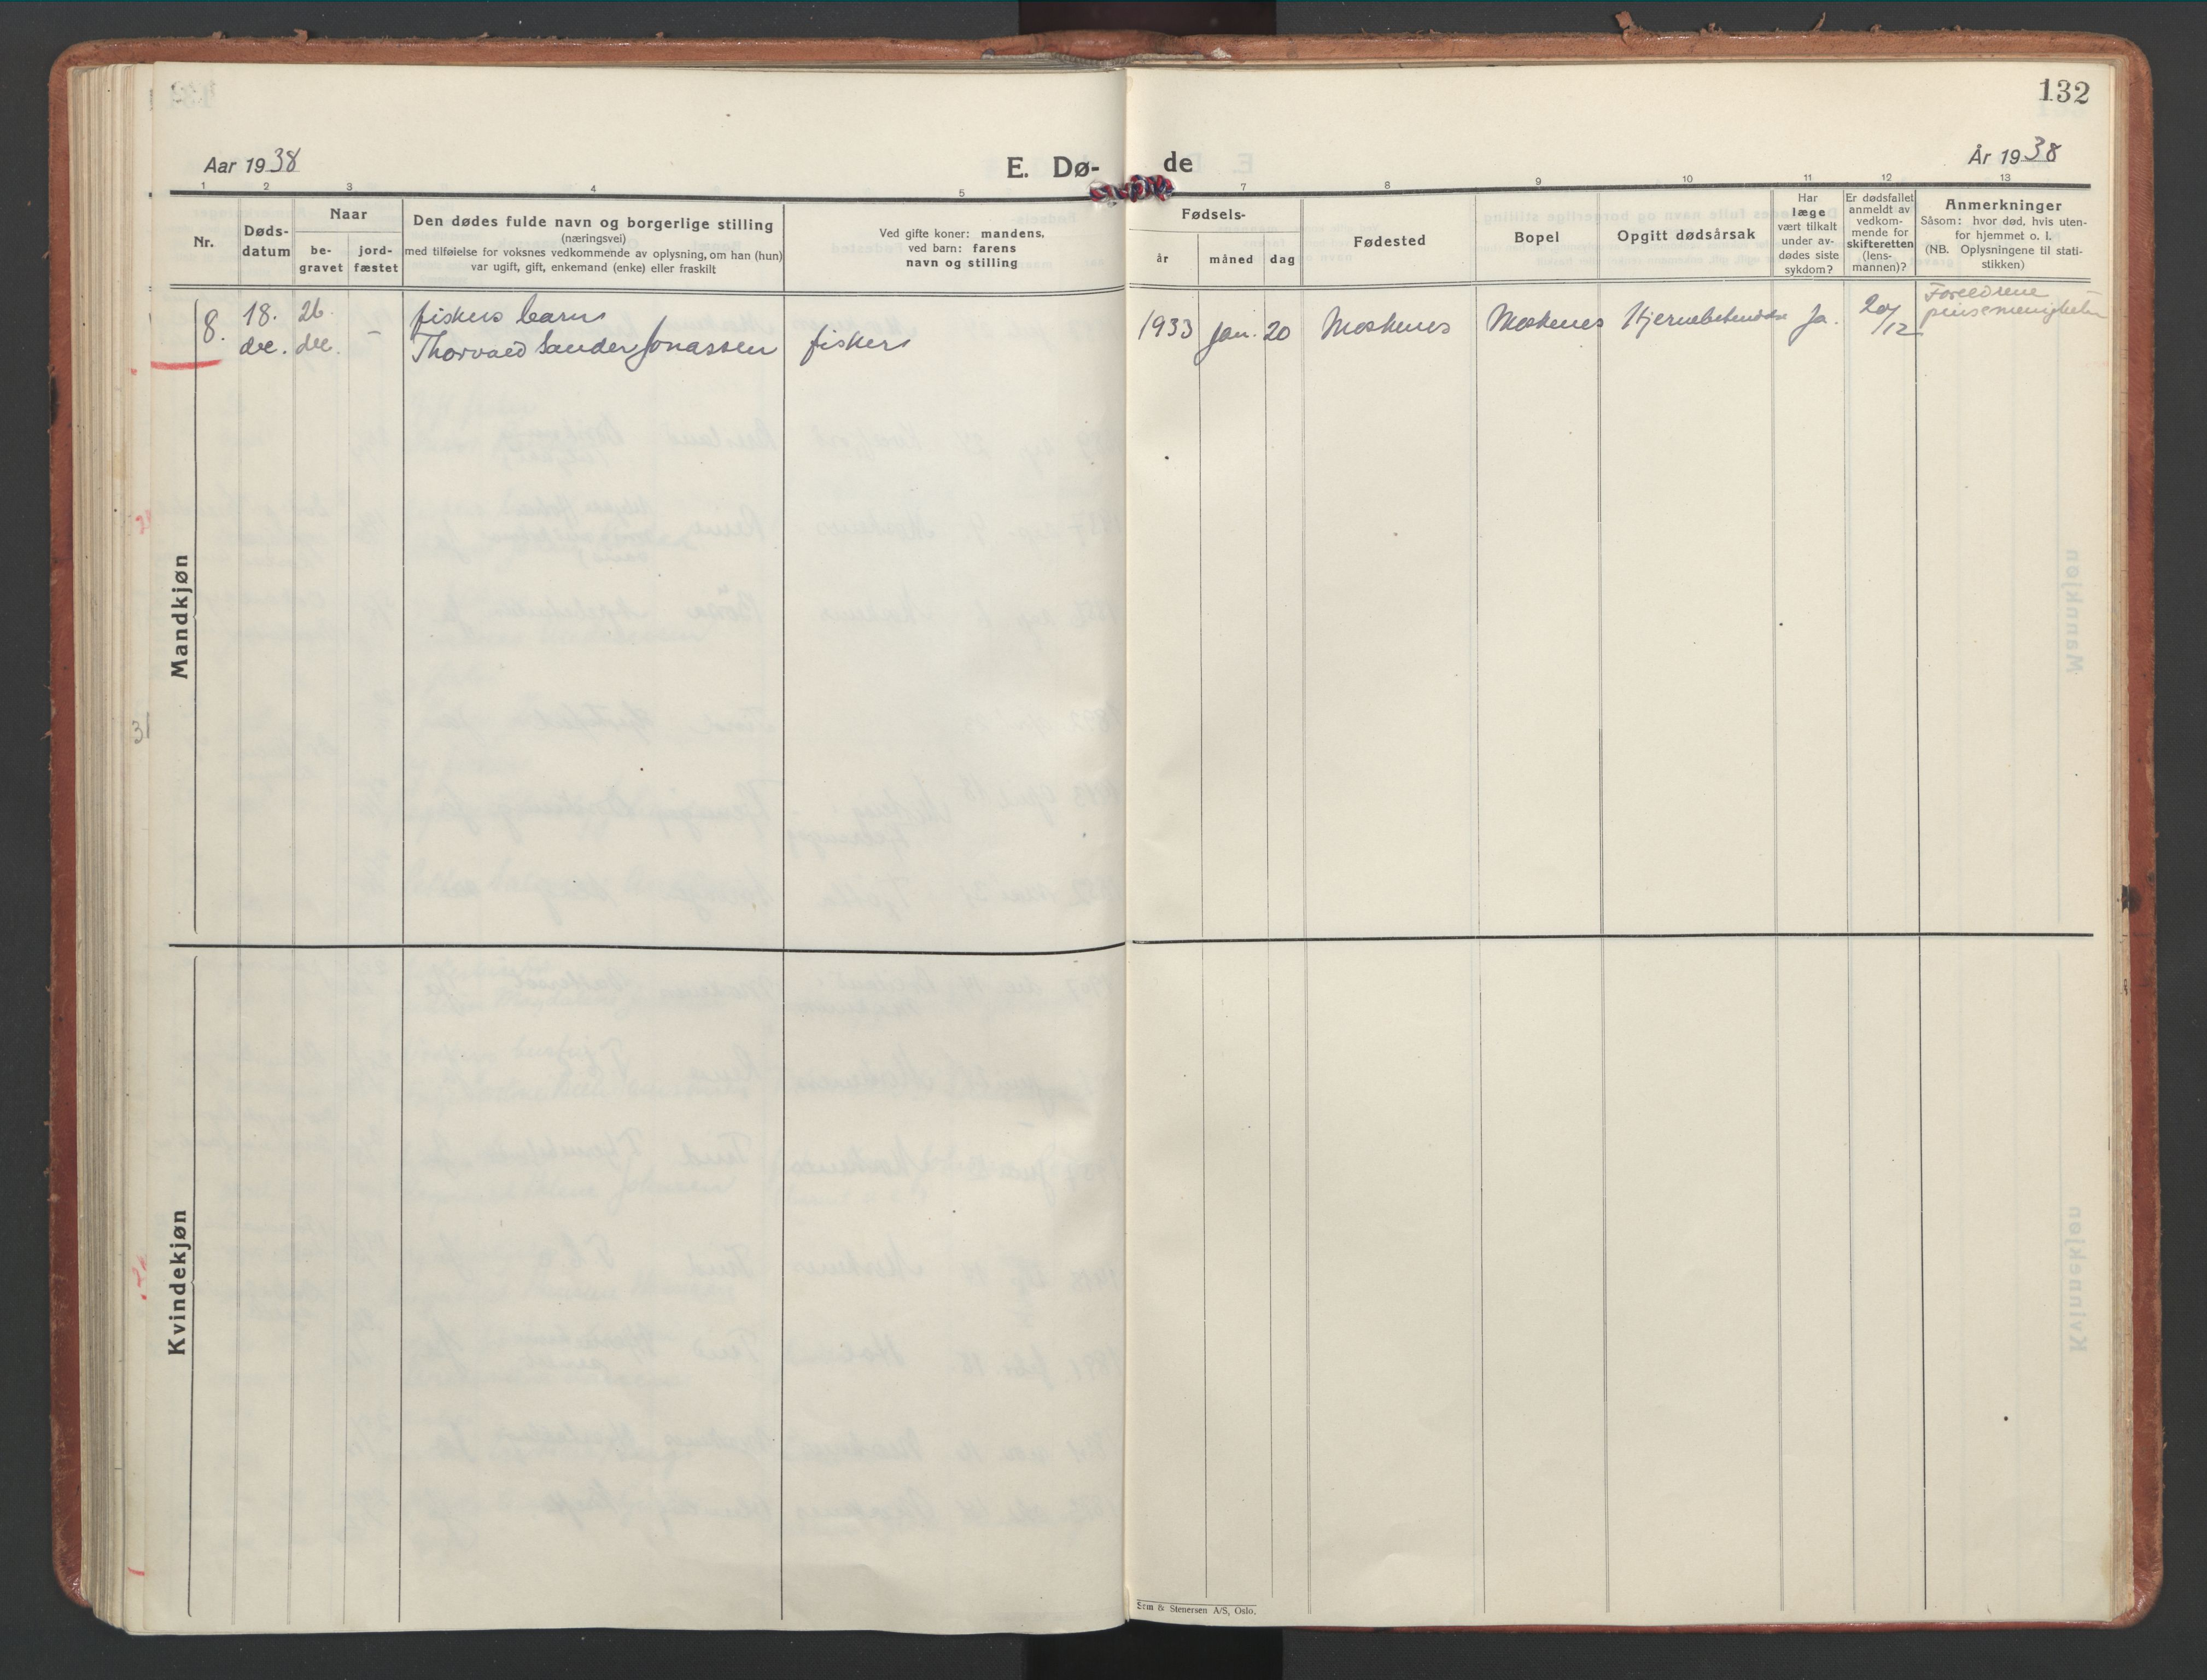 132
Aar 1938
E. Dø-
de
År 1938
1
2
3
4
5
7
8
9
10
11
12
13
Nr.
Døds-
datum
Naar
be-
gravet
jord-
fæstet
Den dødes fulde navn og borgerlige stilling
(næringsvei)
med tilføielse for voksnes vedkommende av oplysning, om han (hun)
var ugift, gift, enkemand (enke) eller fraskilt
Ved gifte koner: mandens,
ved barn: farens
navn og stilling
Fødsels-
år
måned
dag
Fødested
Bopel
Opgitt dødsårsak
Har
læge
vært tilkalt
under av-
dødes siste
sykdom?
Er dødsfallet
anmeldt av
vedkom-
mende for
skifteretten
(lens-
mannen)?
Anmerkninger
Såsom: hvor død, hvis uten-
for hjemmet o. l.
(NB. Oplysningene til stati-
stikken)
Mandkjøn
8.
18.
dec.
26.
dec.
-
fiskers barn
Thorvald Sander Jonassen
fisker
1933
jan.
20
Moskenes
Moskenes
Hjernebetendelse
Ja.
20/12
Foreldrene
pinsemenigheten
Kvindekjøn
Sem & Stenersen A/S, Oslo.